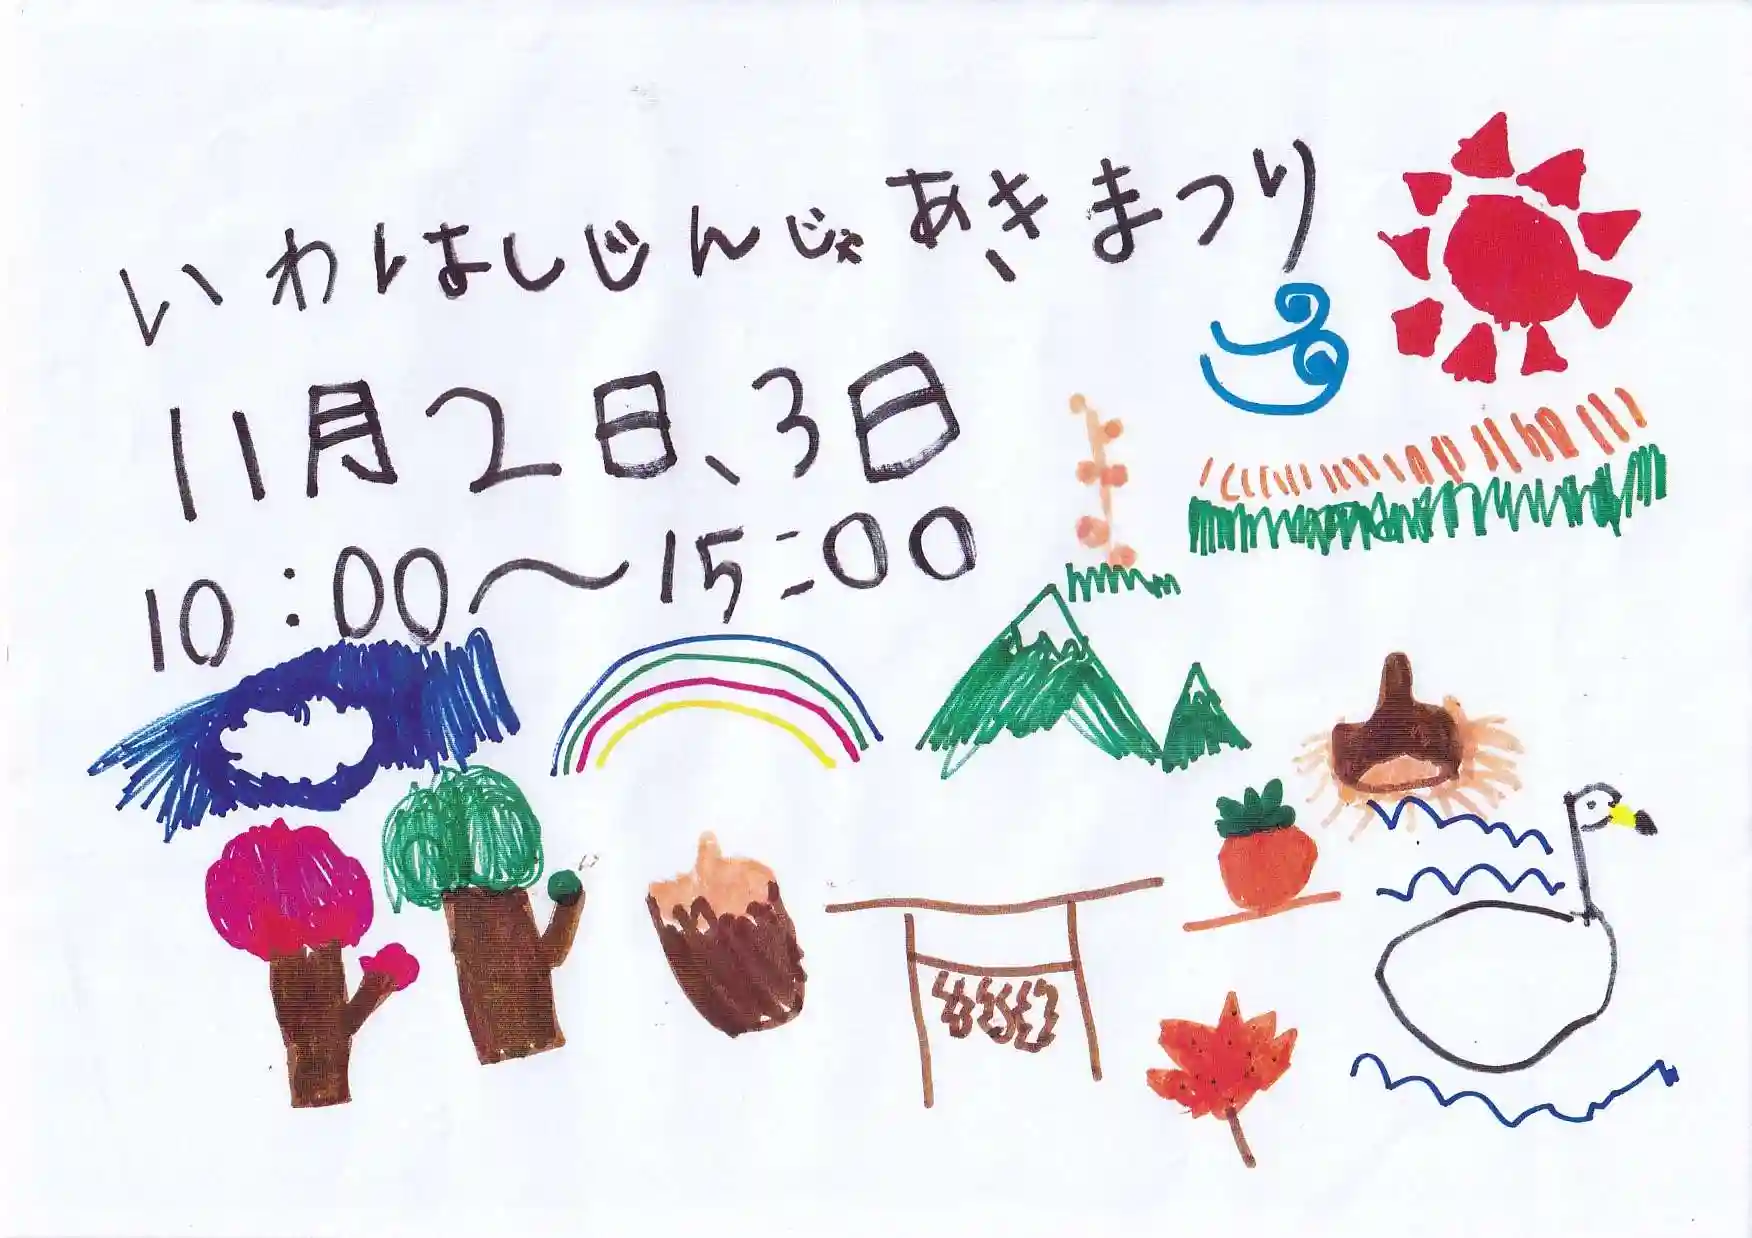 いわはしじんじゃ あきまつり
11月2日、3日
10:00〜15:00